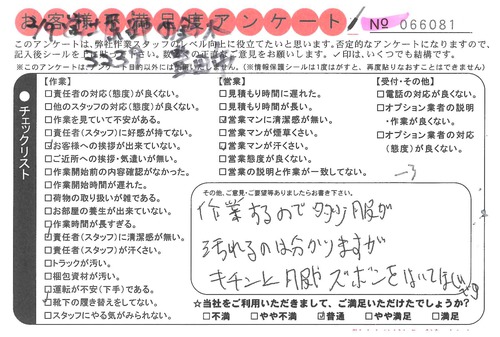 お客様満足度アンケート
No 066081
このアンケートは、弊社作業スタッフのレベル向上に役立てたいと思います。否定的なアンケートになりますので、
記入後シールを
ご意見をお願いします。✓印は、いくつでも結構です。
※このアンケートは、アンケート目的以外にはお願いしません。(※情報保護シールは1度はがすと、再度貼りなおすことはできません)
チェックリスト
【作業】
□責任者の対応(態度)が良くない。
□他のスタッフの対応(態度)が良くない。
□作業を見ていて不安がある。
□責任者(スタッフ)に好感が持てない。
☑お客様への挨拶が出来ていない。
□ご近所への挨拶・気遣いが無い。
□作業開始前の内容確認がなかった。
□作業開始時間が遅れた。
□荷物の取り扱いが雑である。
□お部屋の養生が出来ていない。
☑作業時間が長すぎる。
☑責任者(スタッフ)に清潔感が無い。
□責任者(スタッフ)が汗くさい。
□トラックが汚い。
□梱包資材が汚い。
☑運転が不安(下手)である。
☑靴下の履き替えをしてない。
□スタッフにやる気がみられない。
【営業】
□見積もり時間に遅れた。
□見積もり時間が長い。
☑営業マンに清潔感が無い。
□営業マンが煙草くさい。
☑営業マンが汗くさい。
□営業態度が良くない。
□営業の説明と作業が一致してない。
【受付・その他】
□電話の対応が良くない。
□オプション業者の説明
・作業が良くない。
□オプション業者の対応
(態度)が良くない。
その他、ご意見・ご要望等ありましたらお書き下さい。
作業するので 服が
汚れるのは分かりますが
キチンと服やズボンをはいてほしい
☆当社をご利用いただきまして、ご満足いただけたでしょうか?
□不満 □やや不満 ☑普通 □やや満足 □満足